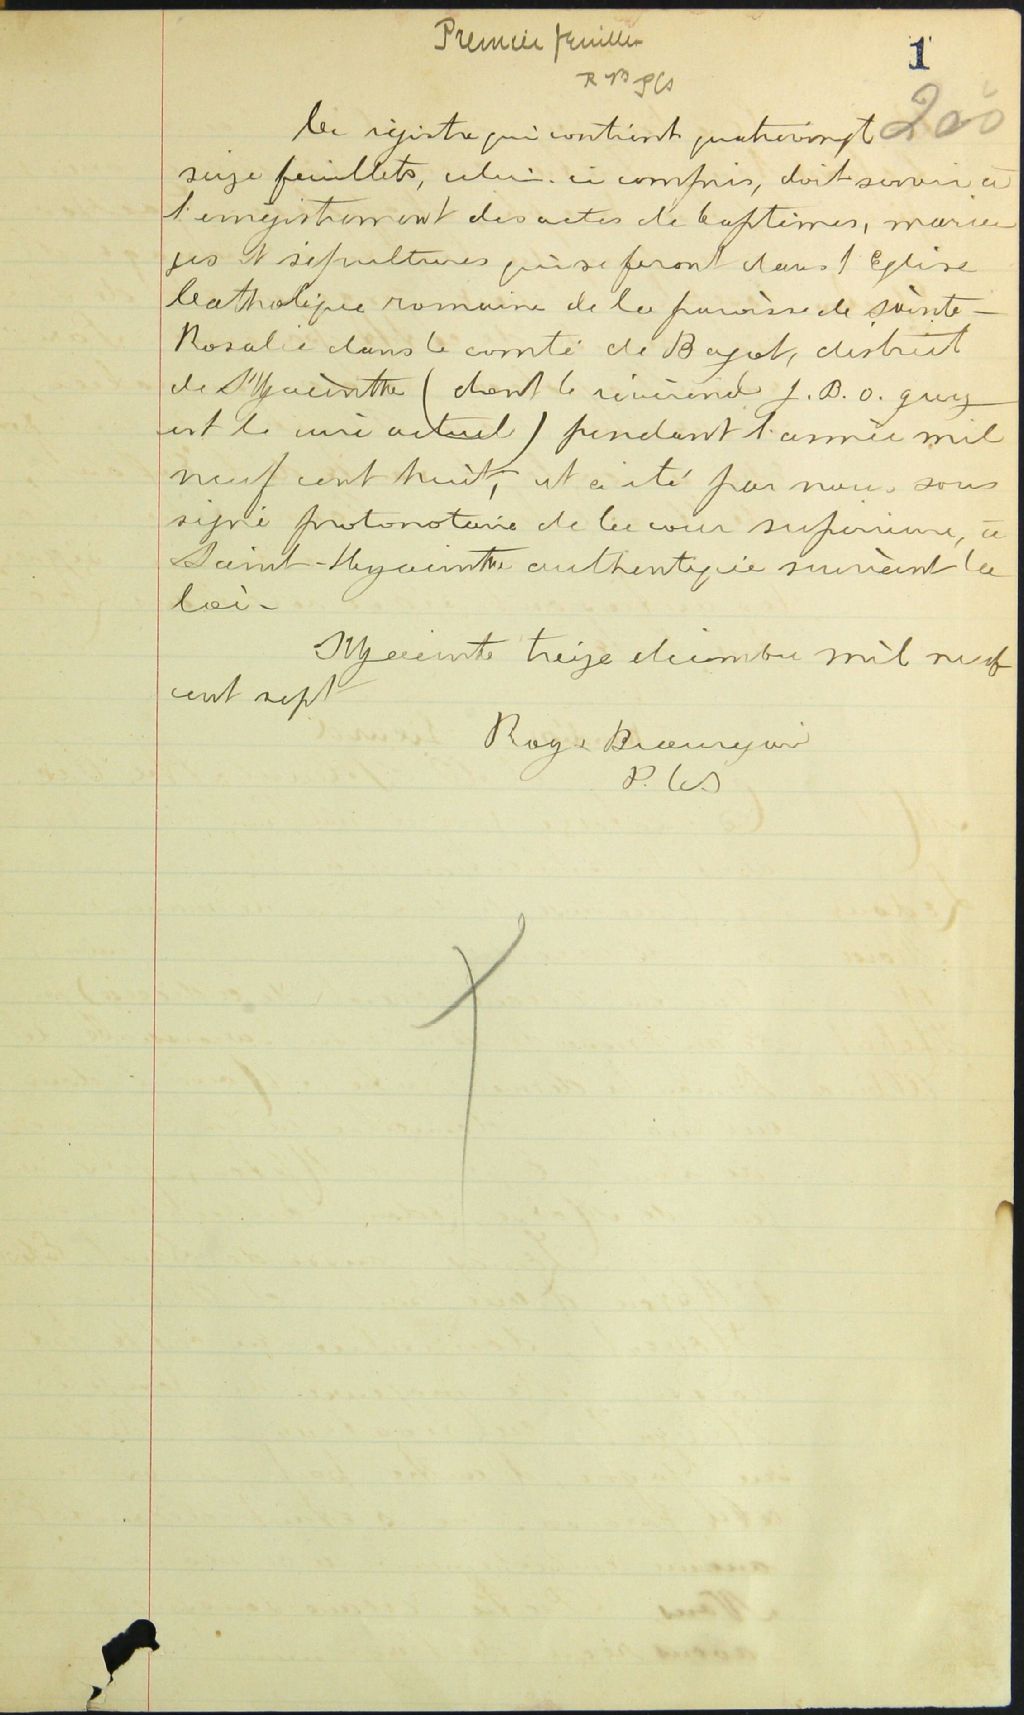 Premier feuillet
1
R B PCS
200
Ce régistre qui contient quatrevingt
seize feuillets, celui-ci compris, doit servir à
l'enrégistrement des actes de baptêmes, maria
ges et sépultures qui se feront dans l'Eglise
Catholique romaine de la paroisse de Sainte-
Rosalie dans le comté de Bagot, district
de St Hyacinthe (dont le révérend J. B. O. Guy
est le curé actuel) pendant l'année mil
neuf cent huit, et a été par nous sous
signé protonotaire de la cour supérieure, à
Saint-Hyacinthe authentiquée suivant la
loi-
St Hyacinthe treize décembre mil neuf
cent sept
Roy & Beauregard
P. C. S